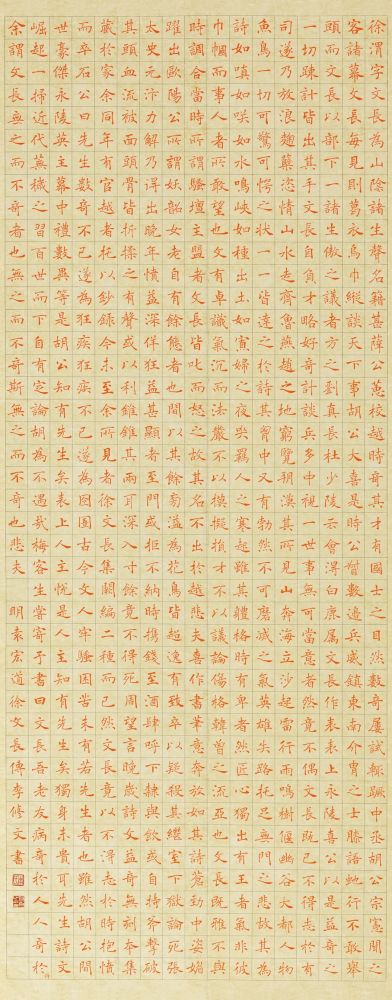 徐渭字文長為山陰諸生聲名籍甚薛公蕙校越時奇其才有國士之目然數奇屢試輒蹶中丞胡公宗憲聞之
客諸幕文長每見則葛衣烏巾縱談天下事胡公大喜是時公督數邊兵威鎮東南介冑之士膝語蛇行不敢舉
頭而文長以部下一諸生傲之議者方之劉真長杜少陵云會得白鹿屬文長作表表上永陵喜公以是益奇之
一切疎計皆出其手文長自負才略好奇計談兵多中視一世事無可當意者然竟不偶文長既已不得志於有
司遂乃放浪麯蘗恣情山水走齊魯燕趙之地窮覽朔漠其所見山奔海立沙起雷行雨鳴樹偃幽谷大都人物
魚鳥一切可驚可愕之狀一一皆達之於詩其胷中又有勃然不可磨滅之氣英雄失路托足無門之悲故其為
詩如嗔如笑如水鳴峽如種出土如寡婦之夜哭羈人之寒起雖其體格時有卑者然匠心獨出有王者氣非彼
巾幗而事人者所敢望也文有卓識氣沉而法嚴不以模擬損才不以議論傷格韓曾之流亞也文長既雅不與
時調合當時所謂騷壇主盟者文長皆叱而怒之故其名不出於越悲夫喜作書筆意奔放如其詩蒼勁中姿媚
躍出歐陽公所謂妖韶女老自有餘態者也間以其餘旁溢為花鳥皆超逸有致卒以疑殺其繼室下獄論死張
太史元汴力解乃得出晚年憤益深佯狂益甚顯者至門或拒不納時攜錢至酒肆呼下隸與飲或自持斧擊破
其頭血流被面頭骨皆折揉之有聲或以利錐錐其兩耳深入寸餘竟不得死周望言晚歲詩文益奇無刻本集
藏於家余同年有官越者托以鈔錄今未至余所見者徐文長集闕編二種而已然文長竟以不得志於時抱憤
而卒石公曰先生數奇不已遂為狂疾狂疾不已遂為囹圄古今文人牢騷困苦未有若先生者也雖然胡公間
世豪傑永陵英主幕中禮數異等是胡公知有先生矣表上人主悅是人主知有先生矣獨身未貴耳先生詩文
崛起一掃近代蕪穢之習百世而下自有定論胡為不遇哉梅客生嘗寄予書曰文長吾老友病奇於人人奇於詩
余謂文長無之而不奇者也無之而不奇斯無之而不奇也悲夫 明袁宏道徐文長傳李修文書